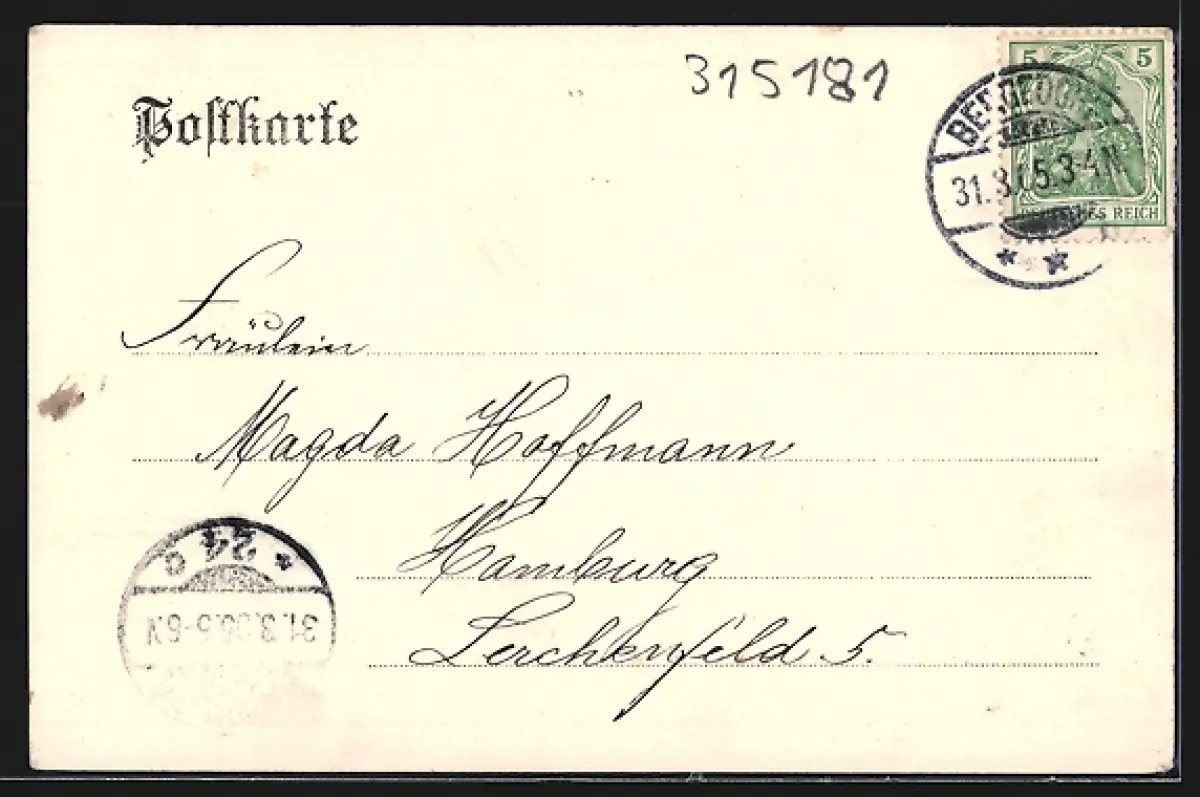 315181
Postkarte
5 5
DEUTSCHES REICH
BERGEDORF
31.3.05.3-4N.
Fräulein
Magda Hoffmann
Hamburg
Lerchenfeld 5.
* 24 c
31.3.05.5-6N